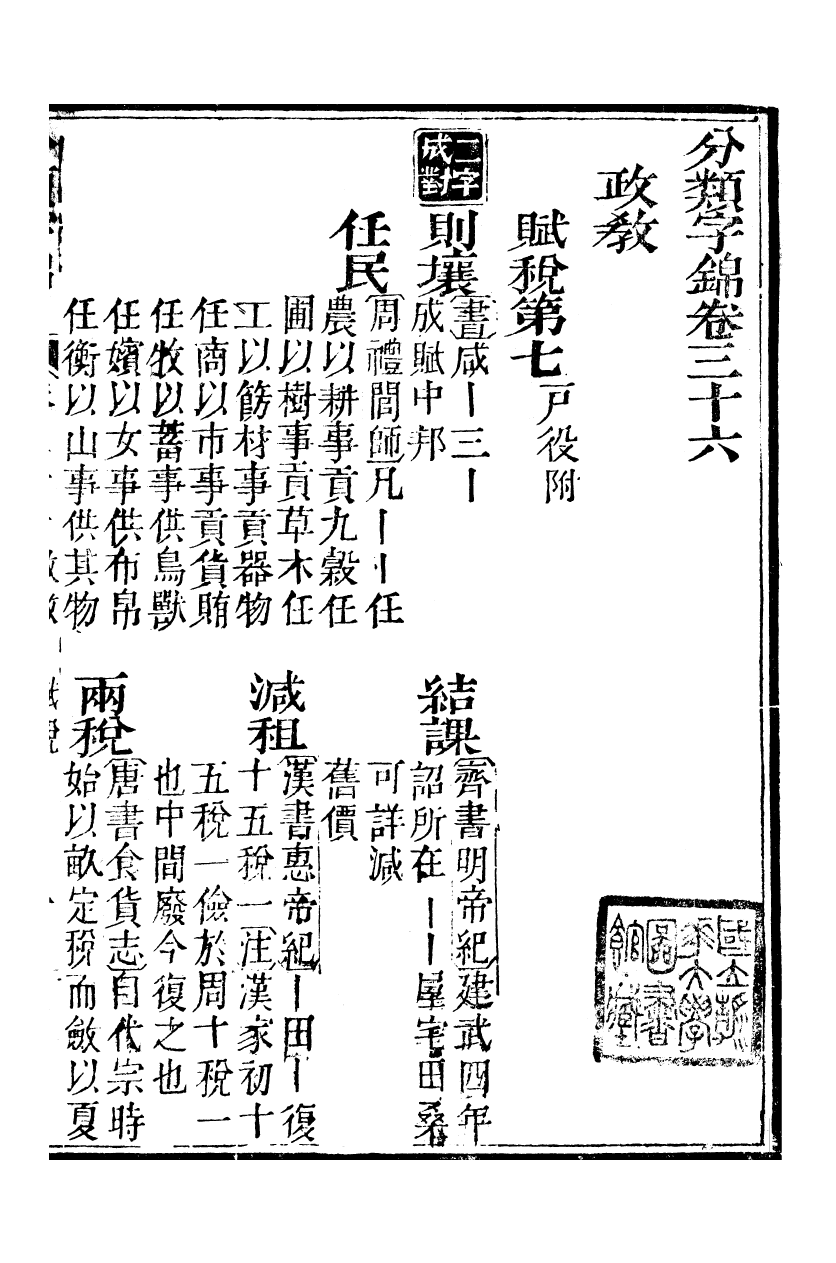 分類字錦卷三十六
政教
賦稅第七 戸役附
二字
成對
則壤
書咸丨三丨
成賦中邦
任民
周禮閭師凡丨丨任
農以耕事貢九穀任
圃以樹事貢草木任
工以飭材事貢器物
任商以市事貢貨賄
任牧以蓄事供鳥獸
任嬪以女事供布帛
任衡以山事供其物
結課
齊書明帝紀建武四年
詔所在丨丨屋宅田桑
可詳減
舊價
減租
漢書惠帝紀丨田丨復
十五稅一注漢家初十
五稅一儉於周十稅一
也中間廢今復之也
兩稅
唐書食貨志自代宗時
始以畝定稅而斂以夏
國立
大學
圖書
館藏